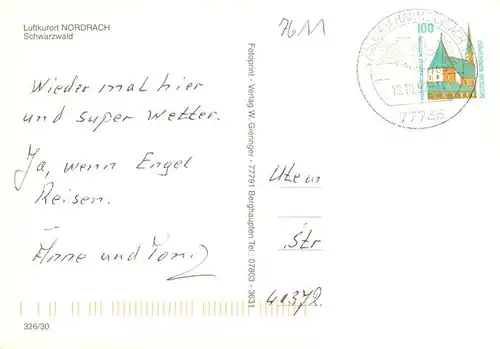 Luftkurort NORDRACH
Schwarzwald
Wieder mal hier
und super Wetter.
Ja, wenn Engel
Reisen.
Anne und Toni
326/30
Fotoprint - Verlag W. Gieringer - 77791 Berghaupten Tel.: 07803 - 3631
7611
100
DEUTSCHE BUNDESPOST
77736
Str
40372